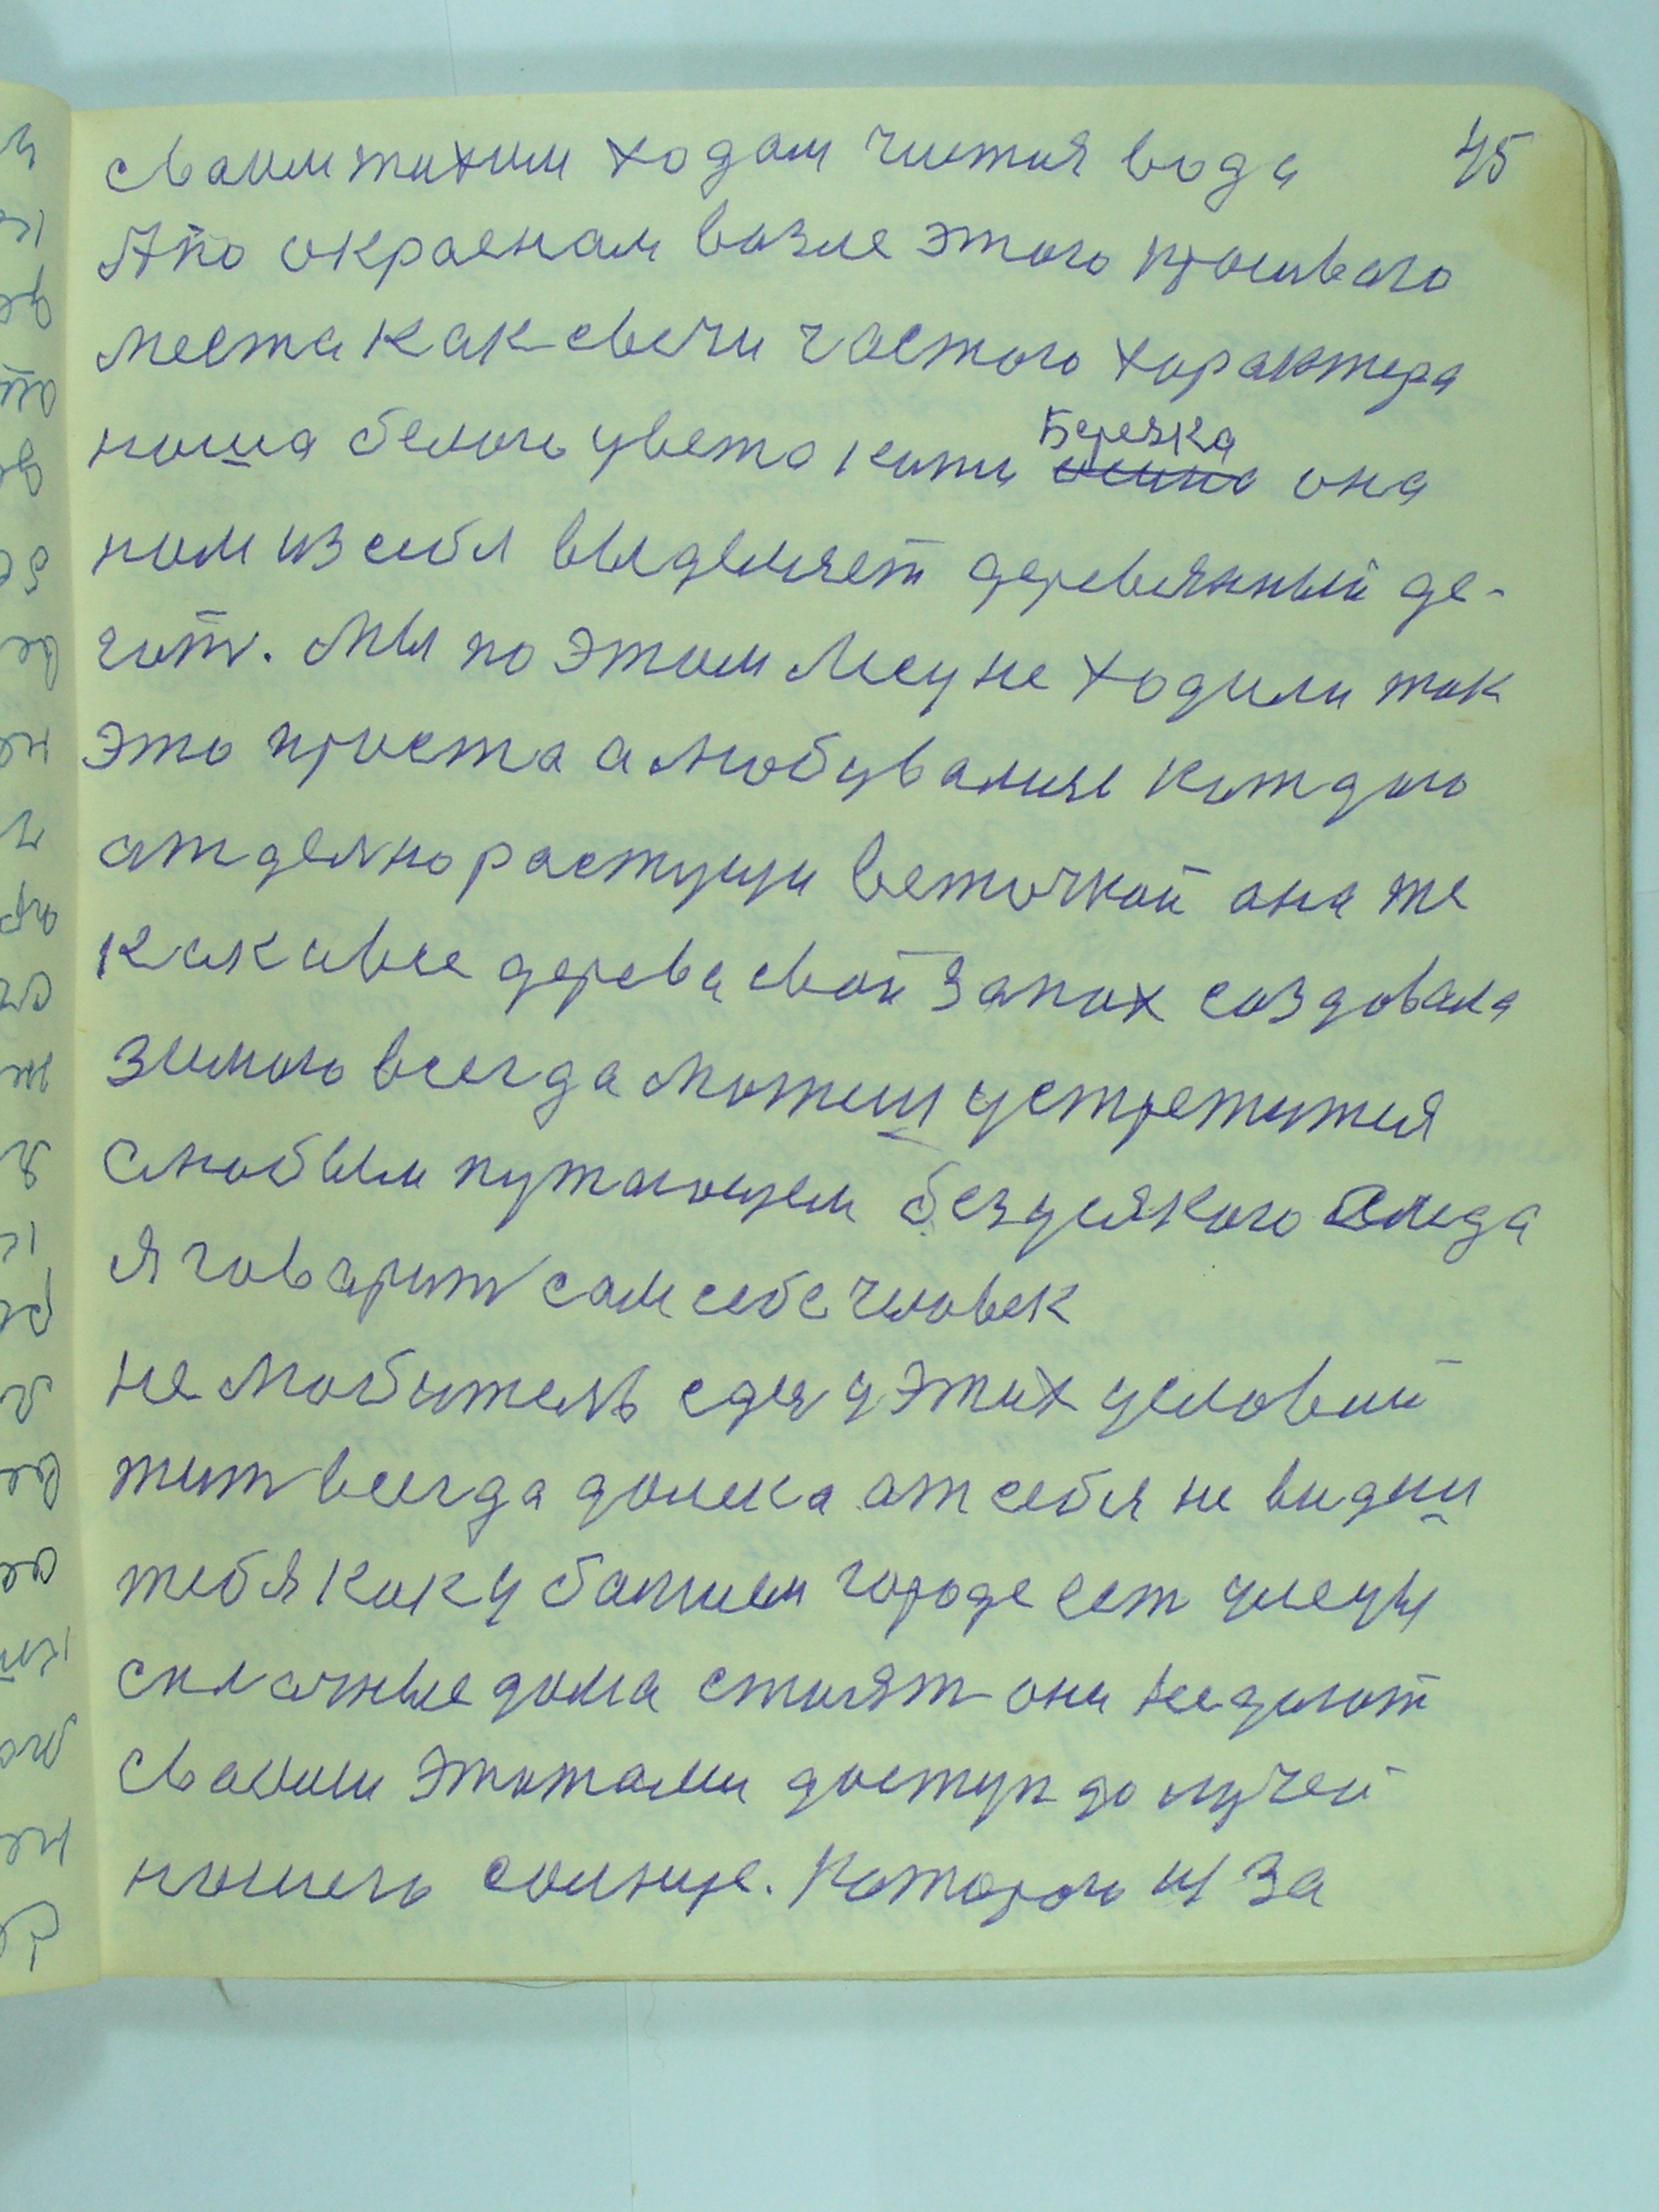 сваим тихим ходам чистия вода 45
А по окраенам возле этого проливаго
места как свечи частого характера
наша белого цвета кати Березка она
нам из себя выделяет деревянный де-
готь. Мы по этом лесу не ходили так
это проста а любувалися каждого
атделно растущи веточкой она же
как и все дерева свой запах создовала
зимою всегда можеш устретится
с любым путающем без усякого следа
Я говарит сам себе человек
не любитель едея у этих условий
жит всегда долека ат себя не видиш
тебя как у бапшем городе ест улецы
сплачные дома стаят они не дают
сваими этажами доступ до лучей
нашего солнце. Которого из за